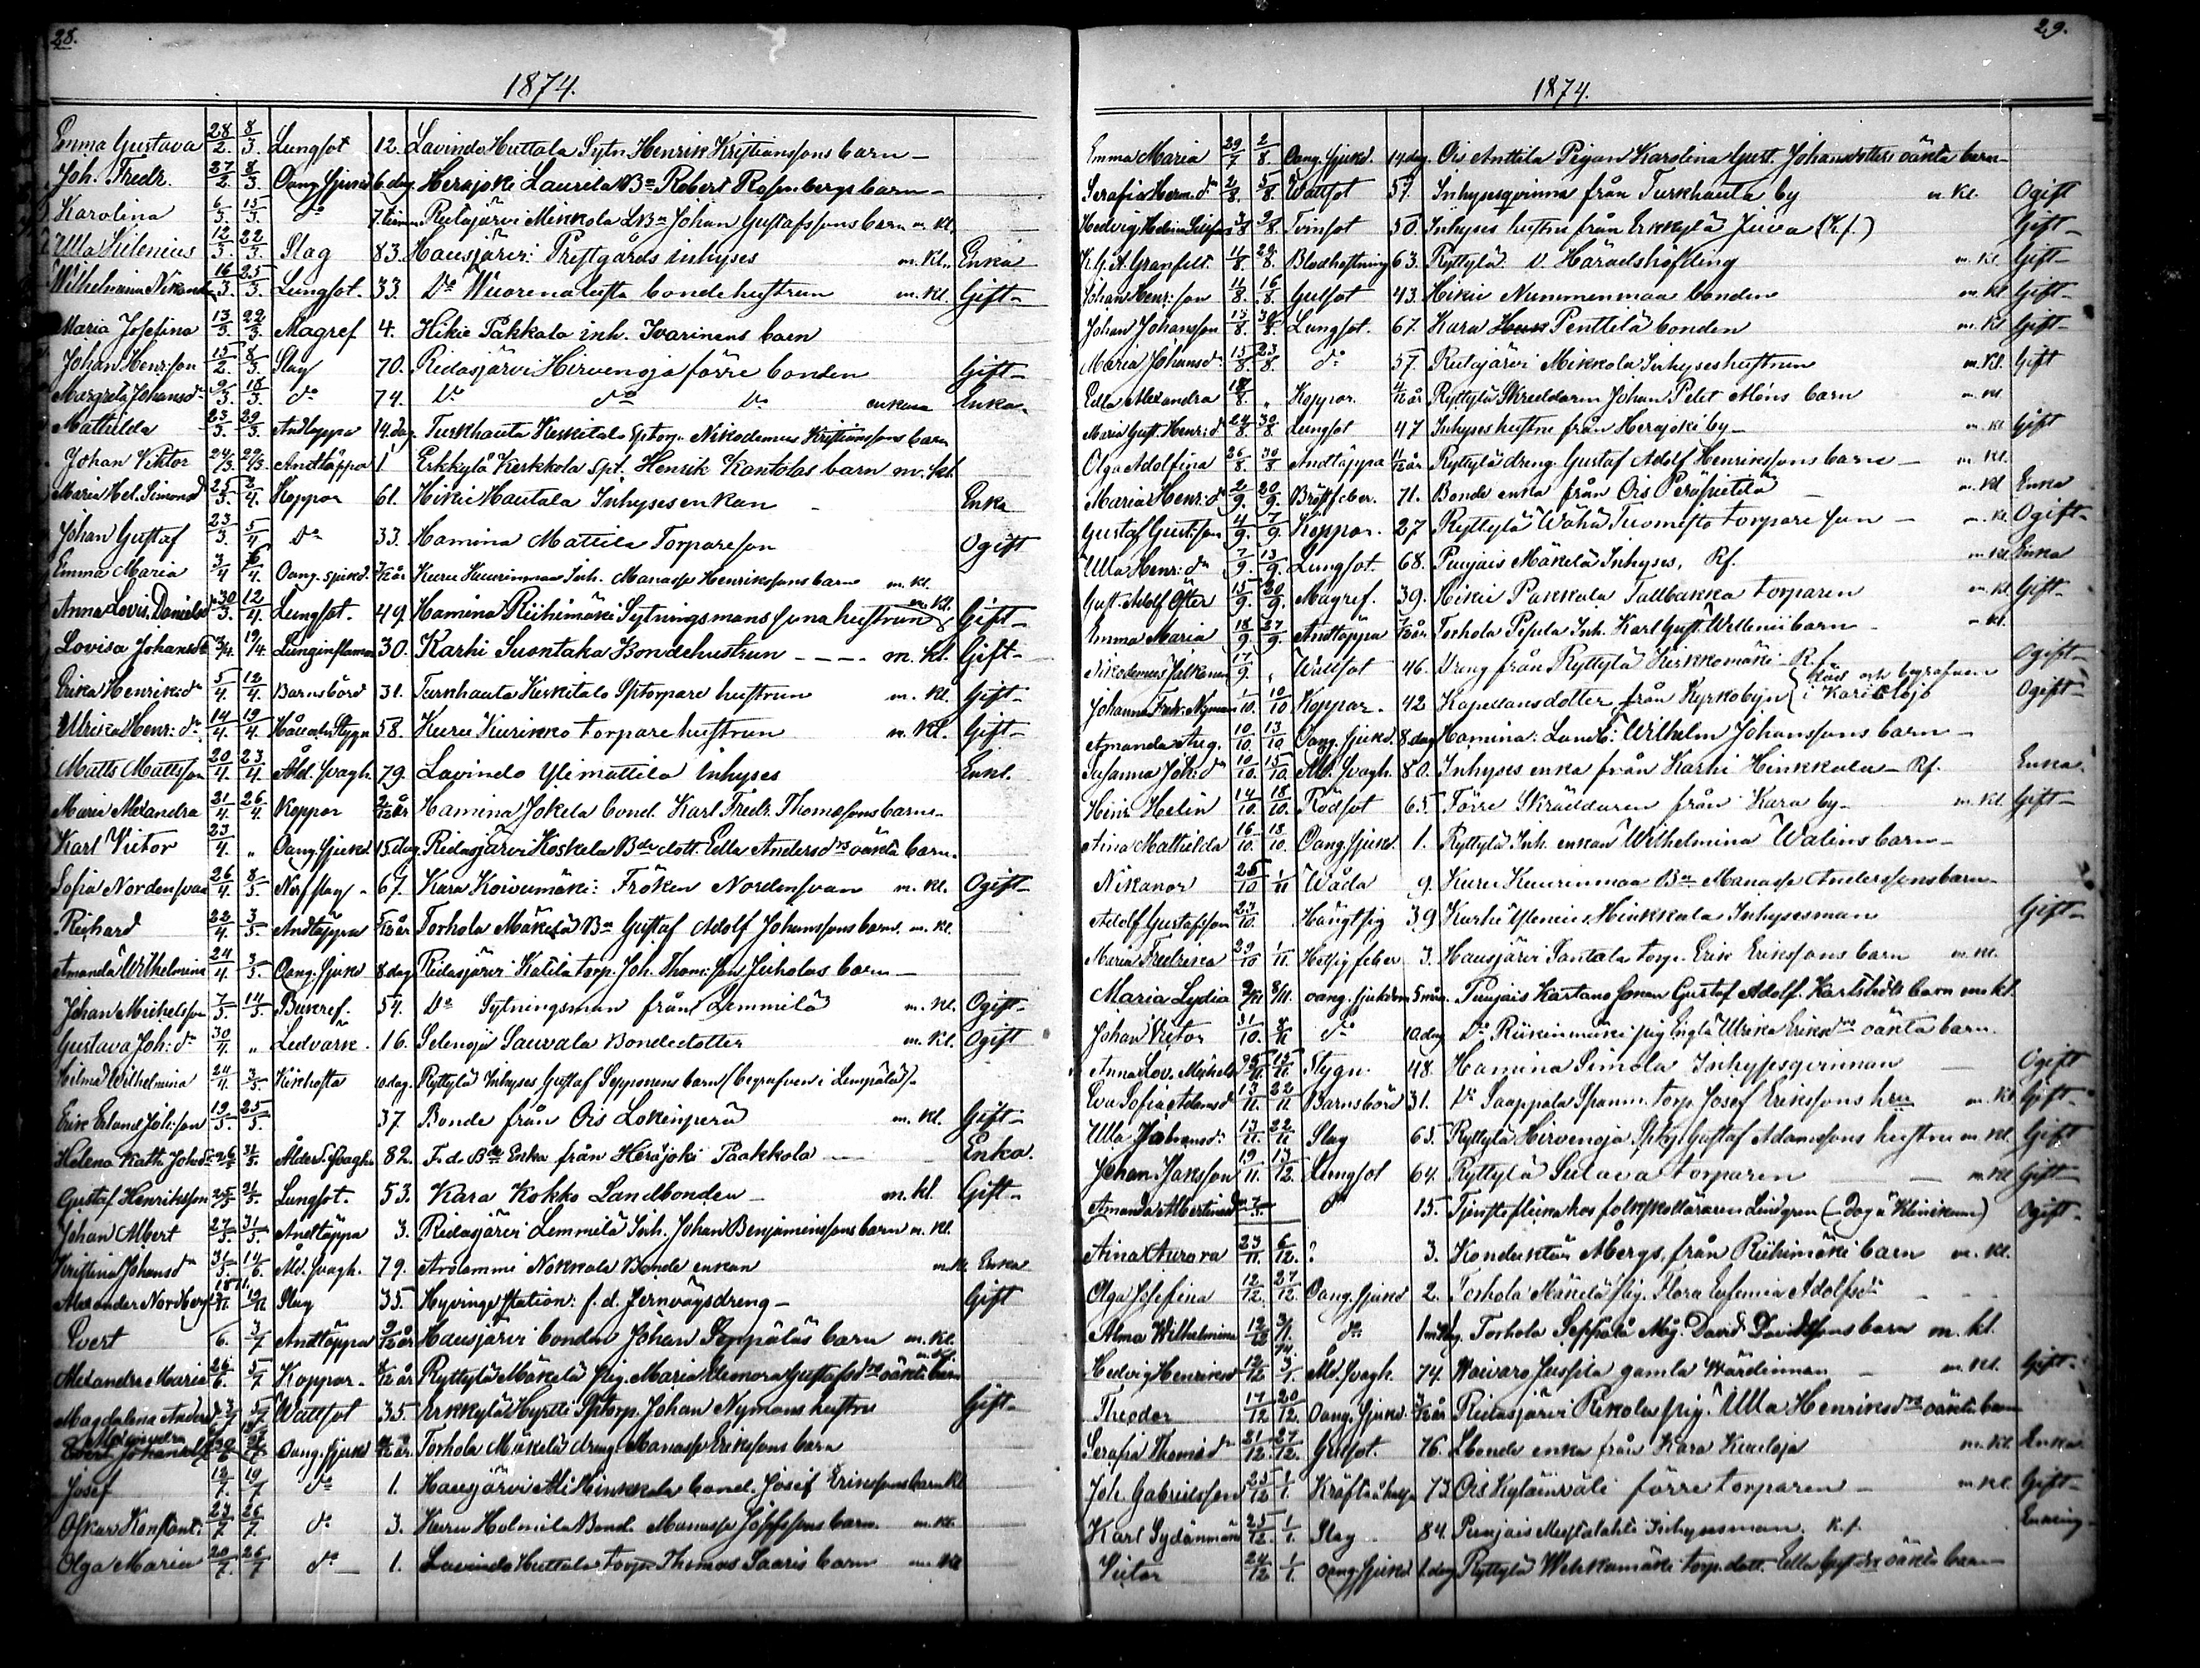 28.
1874.
Emma Gustava 28/2. 8/3. Lungsot 12. Lavinda Huttala Sytn. Henrik Kristianssons barn
Joh. Fredr. 27/2 8/3. Oang. sjukd 6. dag. Herajoki Laurila Bn Robert Rosenbergs barn
Karolina 6/3. 15/3. do Ridasjärvi Mikkola LBn Johan Gustafssons barn m. kl.
Ulla Silenius 12/3. 22/3. Slag 83. Hausjärvi Prestgårds inhyses m. kl. Enka
Wilhelmina 16/3. 25/3. Lungsot. 33. Do Wuorenalusta bondehustrun m. kl. Gift
Maria Josefina 13/3. 22/3. Magref 4. Hikiä Pakkala inh. Ivarinens barn
Johan Henr:son 15/2. 8/3. Slag 70. Ridasjärvi Hirvenoja förre bonden Gift
Margreta Johansdr 9/3. 18/3. do 74. Do do Do enkan Enka
Mathilda 23/3. 29/3. Andtäppa 14. dag. Turkhauta Keskitalo Sptorp. Nikodemus Kristianssons barn
Johan Viktor 24/3. 29/3. Andtäppa 1 Erkkylä Kerkkola spt. Henrik Kantolas barn m. kl.
Maria Hel. Simonsdr 25/3. 2/4. Koppor 61. Hikiä Hautala Inhysesenkan Enka
Johan Gustaf 23/3. 5/4 Do 33. Hamina Mattila Torpareson Ogift
Emma Maria 3/4 6/4. Oang. sjukd. Kuru Kuurinmaa Inh. Manasse Henrikssons barn m. kl.
Anna Lovis. Danielsdr 30/3. 12/4. Lungsot. 49. Hamina Riihimäki Sytningsmans sona hustrun m. kl. Gift
Lovisa Johansdr 3/4. 19/4. Lunginflamm 30. Karhi Suontaka Bondehustrun m. kl. Gift
Erika Henriksdr 5/4. 12/4. Barnsbörd 31. Turkhauta Keskitalo Sptorpare hustrun m. kl. Gift
Ulrika Henr: dr 14/4. 19/4. Håll och Stygn 58. Kuru Kurikko torpare hustrun m. kl. Gift
Matts Mattsson 20/4. 23/4 Åld. svagh. 79. Lavinda Ylimattila inhyses Enkl.
Maria Alexandra 21/4. 26/4 Koppor 2/12 år Hamina Jokela bond. Karl Fredr. Thomassons barn
Karl Victor 23/4. " Oang. sjukd 15. dag Ridasjärvi Koskela Bde dott. Edla Andersdrs oäkta barn.
Sofia Nordensvan 26/4. 8/5. Nerfslag 67. Kara Koivumäki: Fröken Nordensvan m. kl. Ogift
Richard 22/4. 3/5. Andtäppa 5/12 år Torhola Mäkelä Bn Gustaf Adolf Johanssons barn. m. kl.
Amanda Wilhelmina 24/4 3/5. Oang. sjukd 8. dag Ridasjärvi Katila torp. Joh. Thom:son Juholas barn
Johan Michelsson 7/5. 14/5. Bukref. 54. Do Sytningsman från Lemmilä m. kl. Ogift
Gustava Joh: dr 30/4. " Ledvärk. 16. Selenoja Sauvala Bondedotter m. kl. Ogift
Hilma Wilhelmina 24/4. 3/5. Kikhosta 10 dag. Ryttylä Inhyses Gustaf Sepponens barn (begrafven i Lempälä)
Erik Erland Joh:son 19/5. 25/5. 37. Bonde från Ois Lokinperä m. kl. Gift
Helena Kath. Johsdr 26/5 31/5. Ålder. svagh. 82. F. d. Bde Enka från Herajoki Paakkola Enka.
Gustaf Henriksson 25/5 31/5. Lungsot. 53. Kara Kokko Landbonden m. kl. Gift
Johan Albert 27/5. 31/5. Andtäppa 3. Ridasjärvi Lemmilä Inh. Johan Benjaminssons barn m. kl.
Kristina Johansdr 31/5. 14/6. Åld. svagh. 79. Arolammi Nokkala Bonde enkan m. kl. Enka
Alexander Nordberg Slag 35. Hyvinge Station: f. d. Jernvägsdreng Gift
Evert 6. 3/7 Andtäppa 2/12 år Hausjärvi bonden Johan Seppäläs barn m. kl.
Alexandra Maria 26/6. 5/7 Koppor Ryttylä Mäkelä pig. Maria Eleonora Gustafsdrs oäkta barn m. kl.
Magdalena Andersdr 5/7 Wattsot 35. Erkkylä Hyrtti Sptorp. Johan Nymans hustru Gift
Alexandra Oang. sjukd Torhola Mäkelä dreng Manasse Erikssons barn
Josef 12/7. 19/7 do 1. Hausjärvi Ali Hinkkala bond. Josef Erikssons barn kl
Oskar Konstant. 23/7. 26/7. do 3. Kuru Holmila Bond. Manasse Josefssons barn. m. kl.
Olga Maria 20/7. 26/7 do 1. Lavinda Huttala torp. Thomas Saaris barn m. kl
29.
1874.
Emma Maria 29/7 2/8 Oang. sjukd. 14 dag. Ois Anttila Pigan Karolina Gust. Johansdotters oäkta barn
Serafia Herm. dr 2/8. 5/8. Wattsot 57. Inhysesqvinna från Turkhauta by m. kl. Ogift
Hedvig Helena 3/8 9/8. Tvinsot 50. Inhyses hustru från Erkkylä Juva (Rf.) Gift
K. G. A. Granfelt. 11/8. 29/8. Blodhostning 63. Ryttylä v. Häradshöfding m. kl. Gift
Johan Henr:son 11/8. 16/8. Gulsot 43. Hikiä Nummenmaa bonden m. kl. Gift
Johan Johansson 13/8. 30/8. Lungsot. 67. Kara Penttilä bonden m. kl. Gift
Maria Johansdr 15/8. 23/8. do 57. Ridasjärvi Mikkola Inhyseshustrun m. kl. Gift
Edla Alexandra 18/8. " Koppor. 4/12 år Ryttylä Skreddarn Johan Petet Aléns barn m. kl.
Maria Gust. Henr: dr 24/8 30/8 Lungsot 47 Inhyses hustru från Herajoki by m. kl. Gift
Olga Adolfina 26/8. 30/8 Andtäppa 11/12 år Ryttylä dreng Gustaf Adolf Henrikssons barn m. kl.
Maria Henr: dr 2/9. 20/9. Bröstfeber. 71. Bonde enka från Ois Peräpietilä m. kl Enka
Gustaf Gust:son 4/9. 7/9. Koppor. 27 Ryttylä Wähä Tuomisto torpare son m. kl. Ogift
Ulla Henr: dr 7/9. 13/9. Lungsot. 68. Punjais Mäkelä Inhyses, Rf. m. kl. Enka
Gust. Adolf Öster 15/9. 20/9. Magref. 39. Hikiä Pakkala Tallbacka torparen m. kl. Gift
Emma Maria 18/9. 27/9. Andtäppa 7/12 år Torhola Pesula Inh. Karl Gust. Wellenii barn m. kl.
Nikodemus Jalkanen 17/9. " Wattsot 46. Dreng från Ryttylä Kirkkomäki. R. f. Ogift
Johanna Fredr. Nyman 1/10. 10/10 Koppor. 42 Kapellansdotter från Kyrkobyn { död och begrafven i Karislojo Ogift
Amanda Aug. 10/10. 13/10 Oang. sjukd. 8. dag Hamina: Landb: Wilhelm Johanssons barn
Susanna Joh: dr 10/10. 15/10. Åld. svagh. 80. Inhyses enka från Karhi Hinkkala Rf. Enka.
Henr. Helén 14/10. 18/10. Rödsot 65. Förre Skräddaren från Kara by m. kl. Gift
Aina Mathilda 16/10. 18/10. Oang. sjukd. 1. Ryttylä Inh. enkan Wilhelmina Walins barn
Nikanor 25/10 1/11 Wåda 9. Kuru Kuurinmaa Bn Manasse Anderssons barn
Adolf Gustafsson 23/10. Hängt sig 39 Karhi Yleniis Hinkkala Inhysesman Gift
Maria Fredrika 29/10 1/11. Hetsig feber 3. Hausjärvi Tantala torp. Erik Erikssons barn m. kl.
Maria Lydia 2/11 8/11. oang. sjukdom 5 mån. Punjais Kartano sonen Gustaf Adolf Karlstedts barn m. kl.
Johan Victor 31/10. 8/11 do 10. dag Do Riikinmäki pig Engla Ulrika Eriksdrs oäkta barn.
Anna Lov. Michelsdr 15/11 Stygn. 48. Hamina Simola Inhysesqvinnan Ogift
Eva Sofia Adamsd 13/11. 22/11 Barnsbörd 31. Do Saappala Spanm. torp. Josef Erikssons hru m. kl Gift
Ulla Johansdr 13/11. 22/11 Slag 65. Ryttylä Hirvenoja Sptp. Gustaf Adamssons hustru m. kl. Gift
Johan Jaksson 19/11. 13/12. Lungsot 64. Ryttylä Sulava torparen m. kl. Gift
Amanda Albertina do 15. Tjensteflicka hos folkskolläraren Lindgren (Dog å Klinikum) Ogift
Aina Aurora 23/11. 6/12. ? 3. Konduktör Åbergs, från Riihimäki barn m. kl.
Olga Josefina 12/12. 27/12. Oang. sjukd 2. Torhola Mäkelä pig. Flora Eufemia Adolfsdr
Alma Wilhelmina 12/12 3/1. do Torhola Seppälä Måg. David Davidssons barn m. kl.
Hedvig Henriksd 12/12 3/1. Åld. svagh. 74. Woivara Jussila gamla värdinnan m. kl. Gift
Theodor 17/12 20/12. Oang. sjukd. Ridasjärvi Rekola pig. Ulla Henriksdrs oäkta barn
Serafia Thomsdr 21/12. 27/12. Gulsot. 76. Lbonde enka från Kara Kuuloja m. kl. Enka
Joh. Gabrielsson 25/12 1/1. Kräftsårs 73. Ois Kyläinväli förre torparen m. kl. Gift
Karl Sydänmäki 25/12. 1/1. Slag 84. Punjais Mustalahti Inhysesman. R. f.
Victor 24/12 1/1. Oang. sjukd 1. dag Ryttylä Wehkamäki torp. dott. Edla oäkta barn